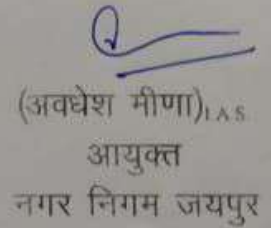 (अवधेश मीणा)I.A.S.
आयुक्त
नगर निगम जयपुर